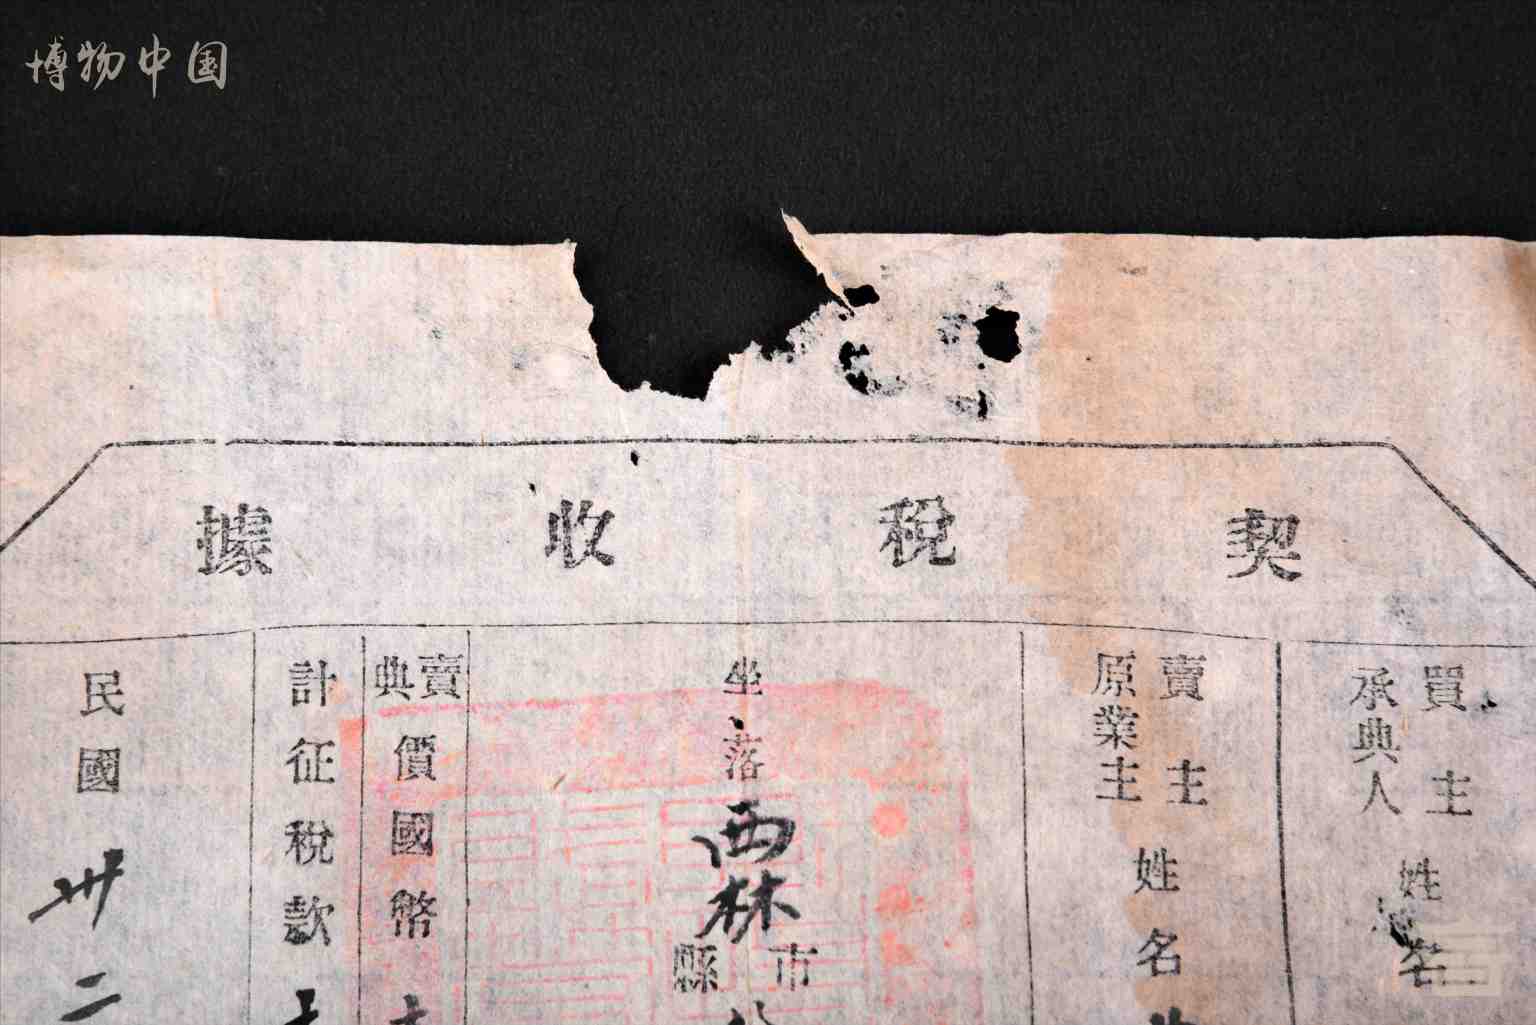 博物中国
契稅收據
買主
承典人
姓名
賣主
原業主
姓名
坐落西林
市
縣
賣
典
價國幣
計征稅款
民國卅二